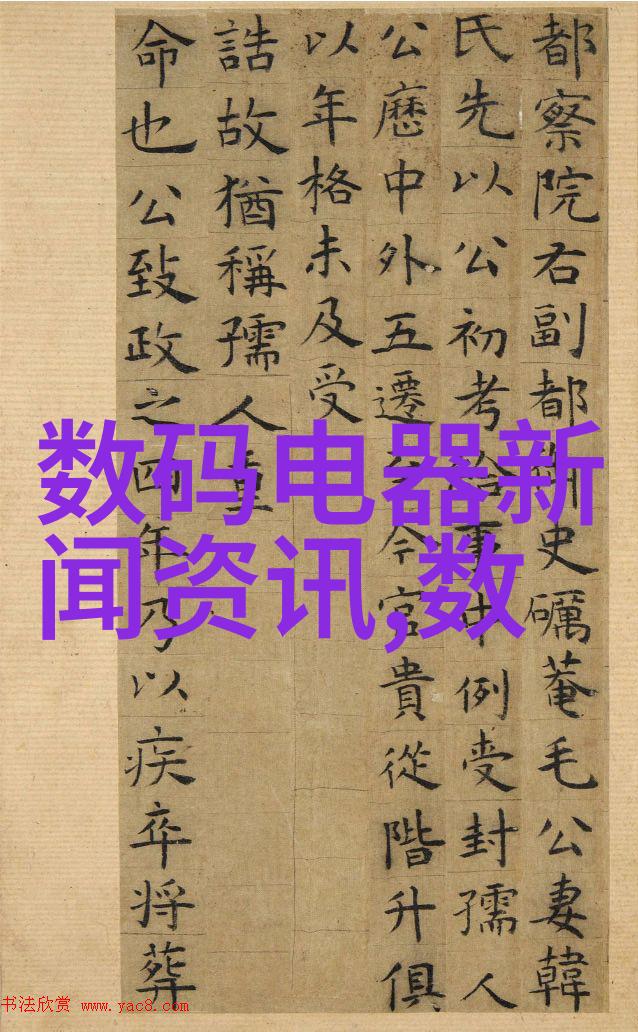 都察院右副都御史礪菴毛公妻韓
氏先以公初考給事中例受封孺人
公歷中外五遷至今官貴從階升俱
以年格未及受
誥故猶稱孺人重
命也公致政之四年乃以疾卒将葬
数码电器新
闻资讯,数
书法欣赏 www.yac8.com